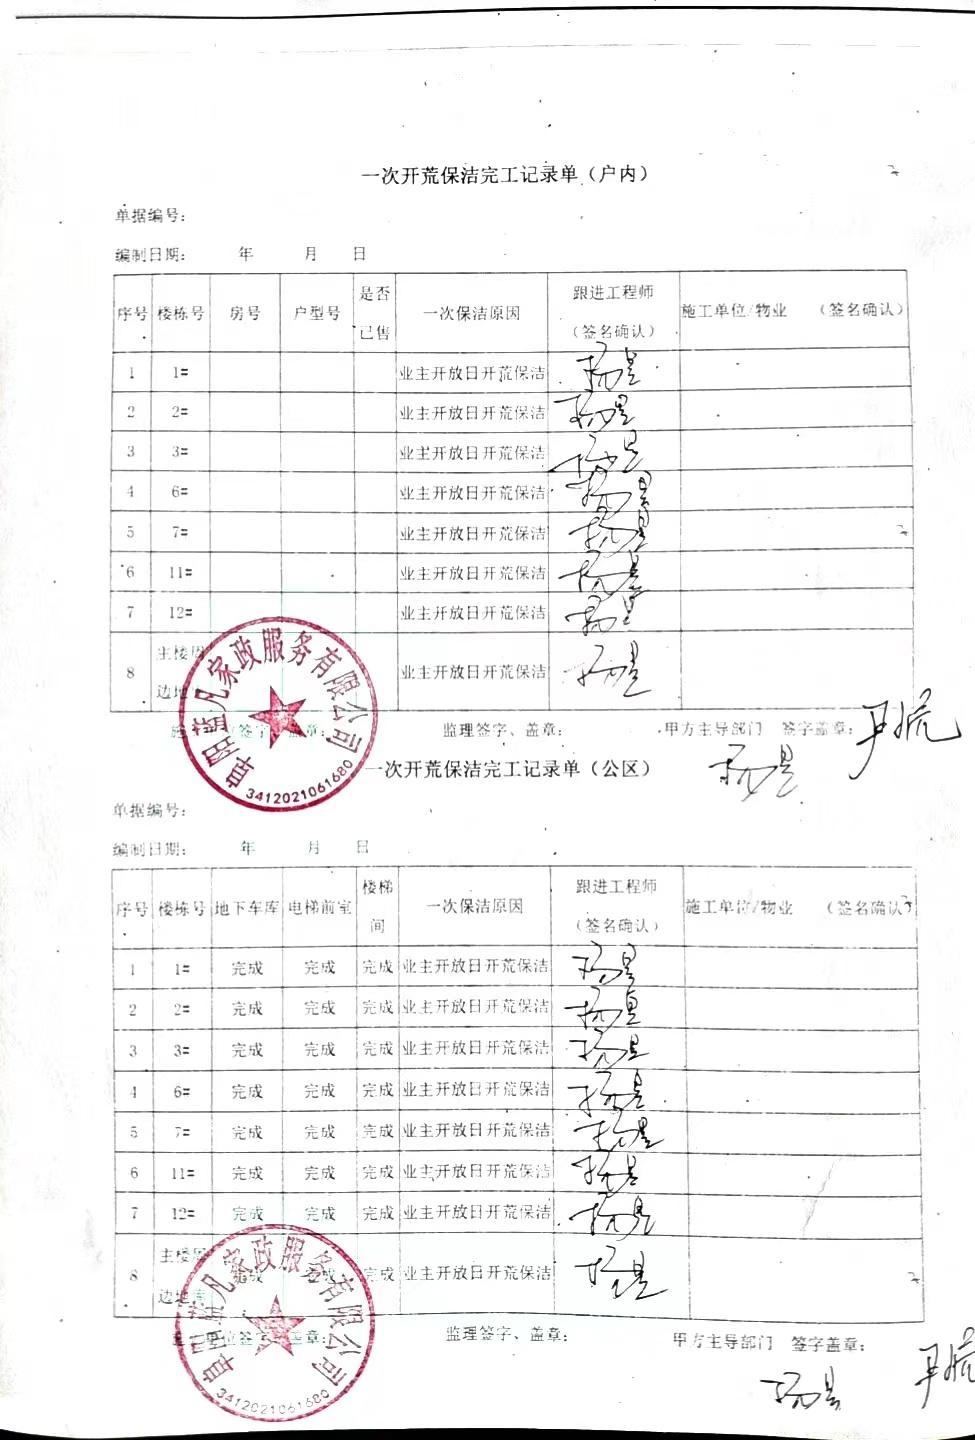 一次开荒保洁完工记录单（户内）
单据编号：
编制日期： 年 月 日
序号 楼栋号 房号 户型号 是否已售 一次保洁原因 跟进工程师（签名确认） 施工单位/物业 （签名确认）
1 1= 业主开放日开荒保洁
2 2= 业主开放日开荒保洁
3 3= 业主开放日开荒保洁
4 6= 业主开放日开荒保洁
5 7= 业主开放日开荒保洁
6 11= 业主开放日开荒保洁
7 12= 业主开放日开荒保洁
8 主楼周边地 业主开放日开荒保洁
施 位签字 盖章： 监理签字、盖章： 甲方主导部门 签字盖章：
阜阳益凡家政服务有限公司
3412021061680
一次开荒保洁完工记录单（公区）
单据编号：
编制日期： 年 月 日
序号 楼栋号 地下车库 电梯前室 楼梯间 一次保洁原因 跟进工程师（签名确认） 施工单位/物业 （签名确认）
1 1= 完成 完成 完成 业主开放日开荒保洁
2 2= 完成 完成 完成 业主开放日开荒保洁
3 3= 完成 完成 完成 业主开放日开荒保洁
4 6= 完成 完成 完成 业主开放日开荒保洁
5 7= 完成 完成 完成 业主开放日开荒保洁
6 11= 完成 完成 完成 业主开放日开荒保洁
7 12= 完成 完成 完成 业主开放日开荒保洁
8 主楼周边地库 完成 完成 完成 业主开放日开荒保洁
位签字 盖章： 监理签字、盖章： 甲方主导部门 签字盖章：
阜阳益凡家政服务有限公司
3412021061680